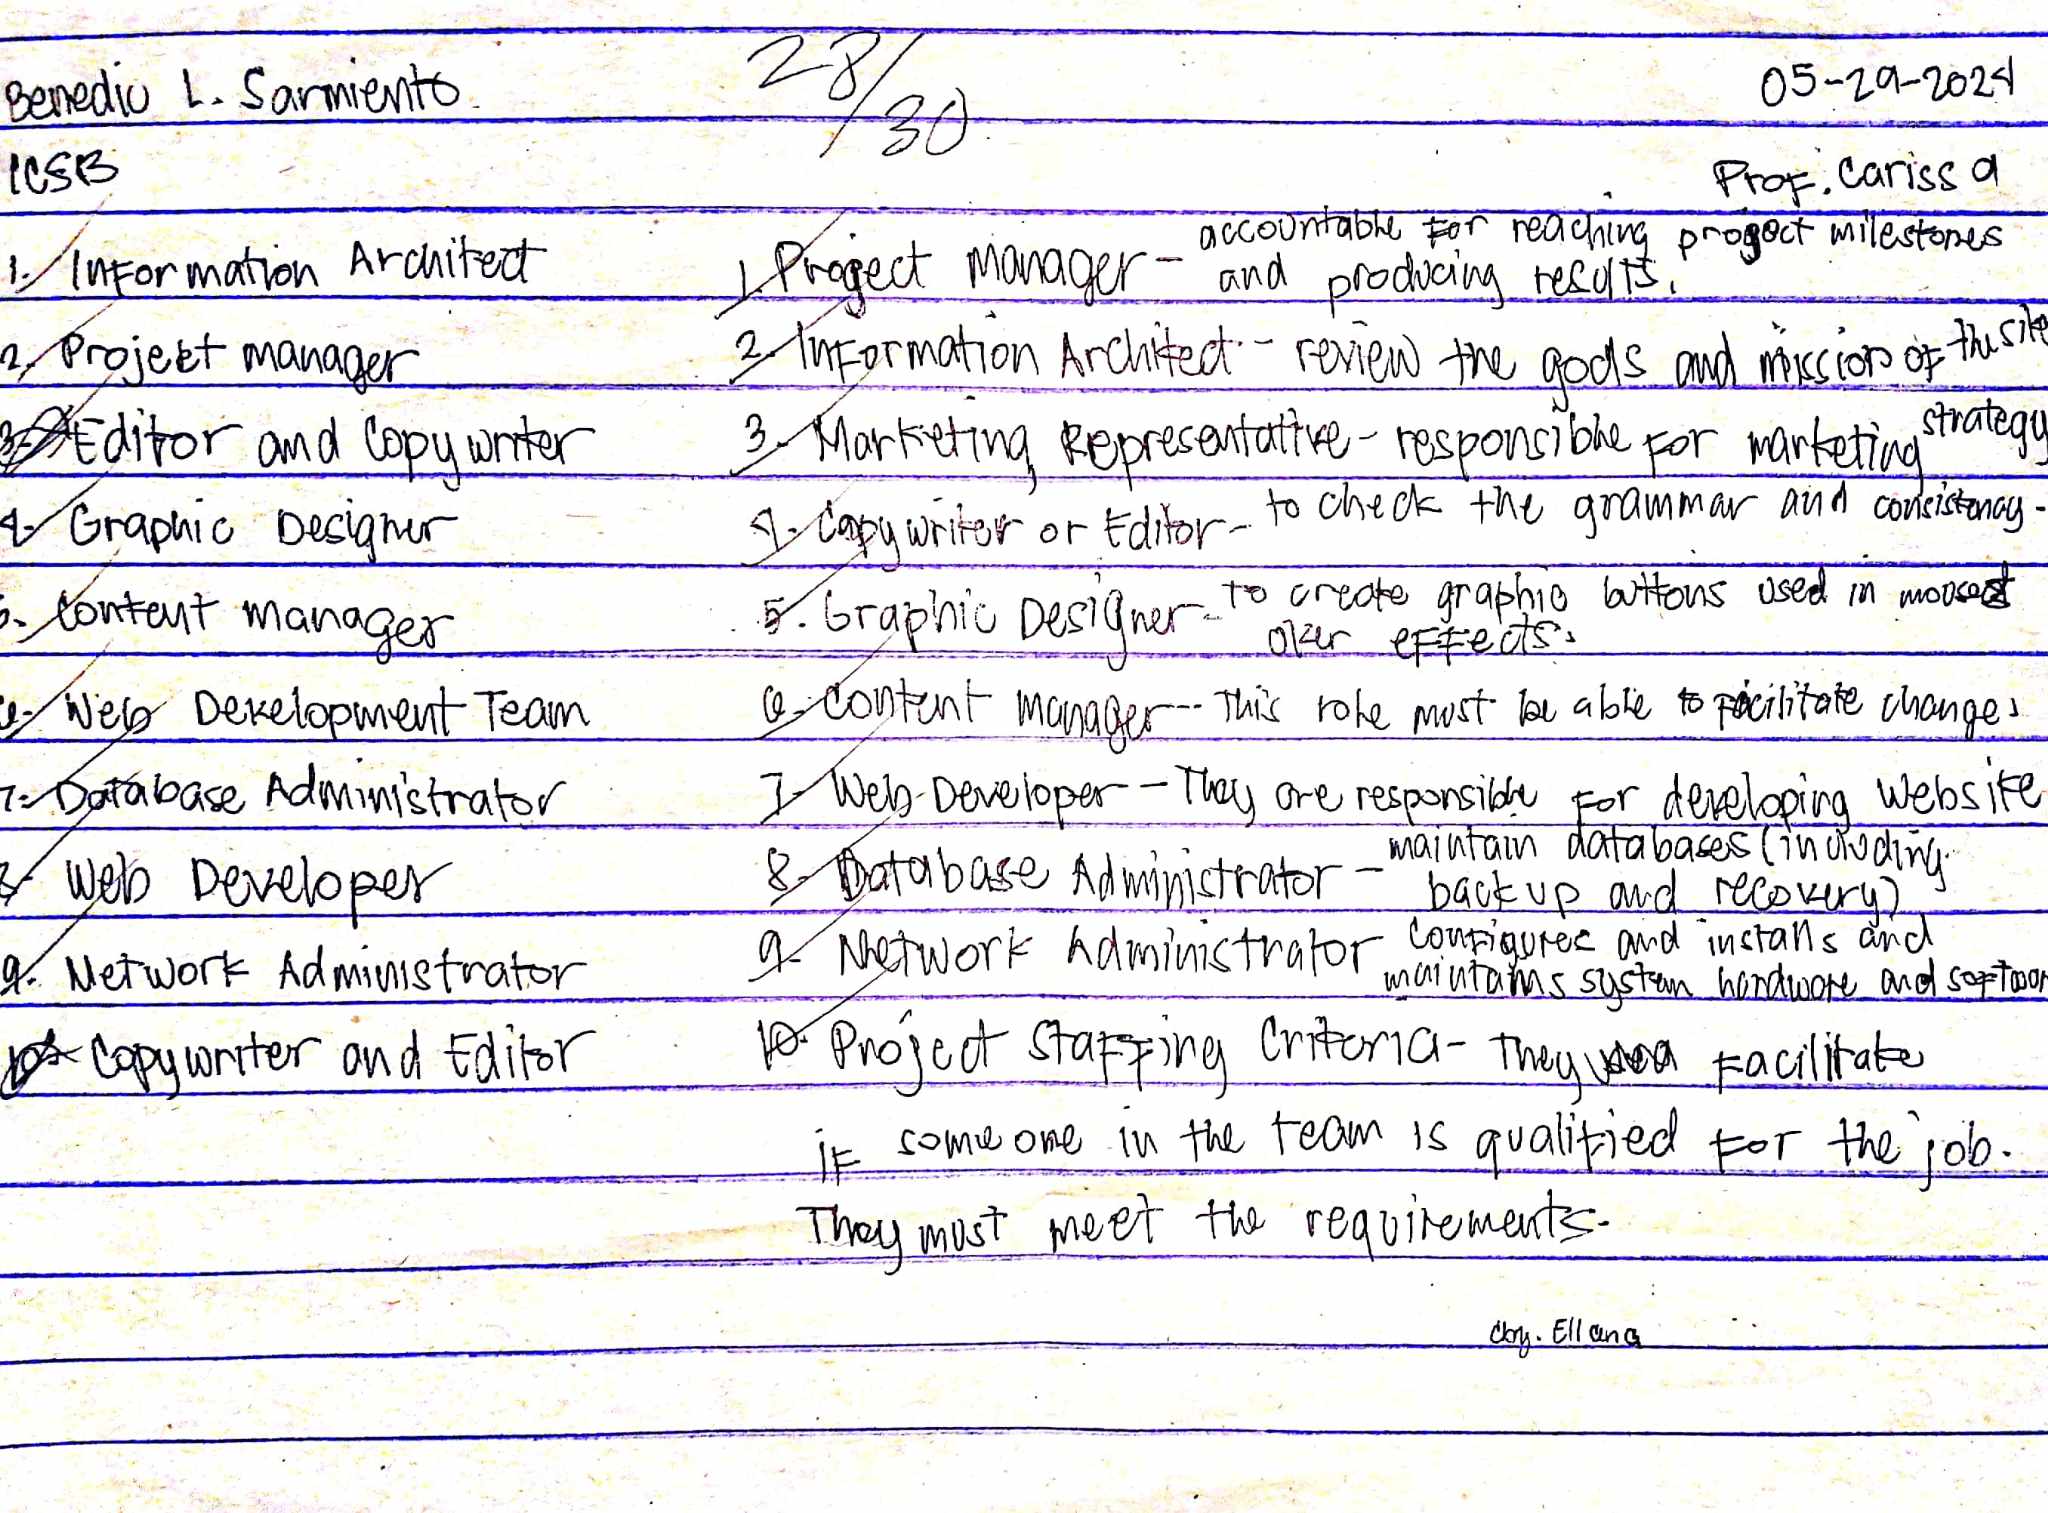 Benedic L. Sarmiento
28/30
05-29-2024
1CSB
Prof. Carissa
1. Information Architect
2. Project manager
3. Editor and Copywriter
4. Graphic Designer
5. Content manager
6. Web Development Team
7. Database Administrator
8. Web Developer
9. Network Administrator
10. Copywriter and Editor
1. Project Manager - accountable for reaching project milestones
and producing results.
2. Information Architect - review the goals and mission of the site
3. Marketing Representative - responsible for marketing strategy
4. Copywriter or Editor - to check the grammar and consistency.
5. Graphic Designer - to create graphic buttons used in
over effects.
6. Content manager - This role must be able to facilitate changes
7. Web Developer - They are responsible for developing website
8. Database Administrator - maintain databases (including
backup and recovery)
9. Network Administrator configures and installs and
maintains system hardware and softwar
10. Project Staffing Criteria - They facilitate
if someone in the team is qualified for the job.
They must meet the requirements.
cby. Ellana